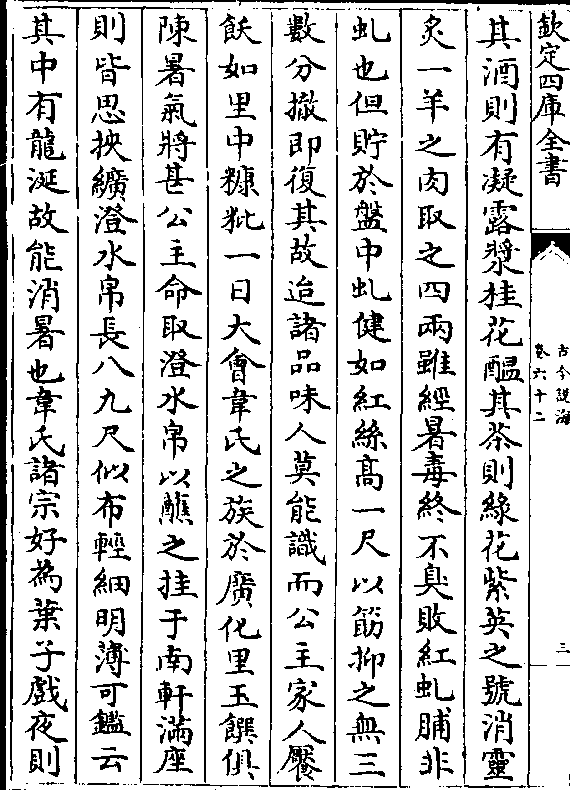 欽定四庫全書
古今說海
卷六十二
三
其酒則有凝露漿桂花醖其茶則綠花紫英之號消靈
炙一羊之肉取之四兩雖經暑毒終不臭敗紅虬脯非
虬也但貯於盤中虬健如紅絲髙一尺以筋抑之無三
數分撤即復其故迨諸品味人莫能識而公主家人饜
飫如里中糠秕一日大會韋氏之族於廣化里玉饌俱
陳暑氣將甚公主命取澄水帛以蘸之挂于南軒滿座
則皆思挾纊澄水帛長八九尺似布輕細明薄可鑑云
其中有龍涎故能消暑也韋氏諸宗好為葉子戲夜則